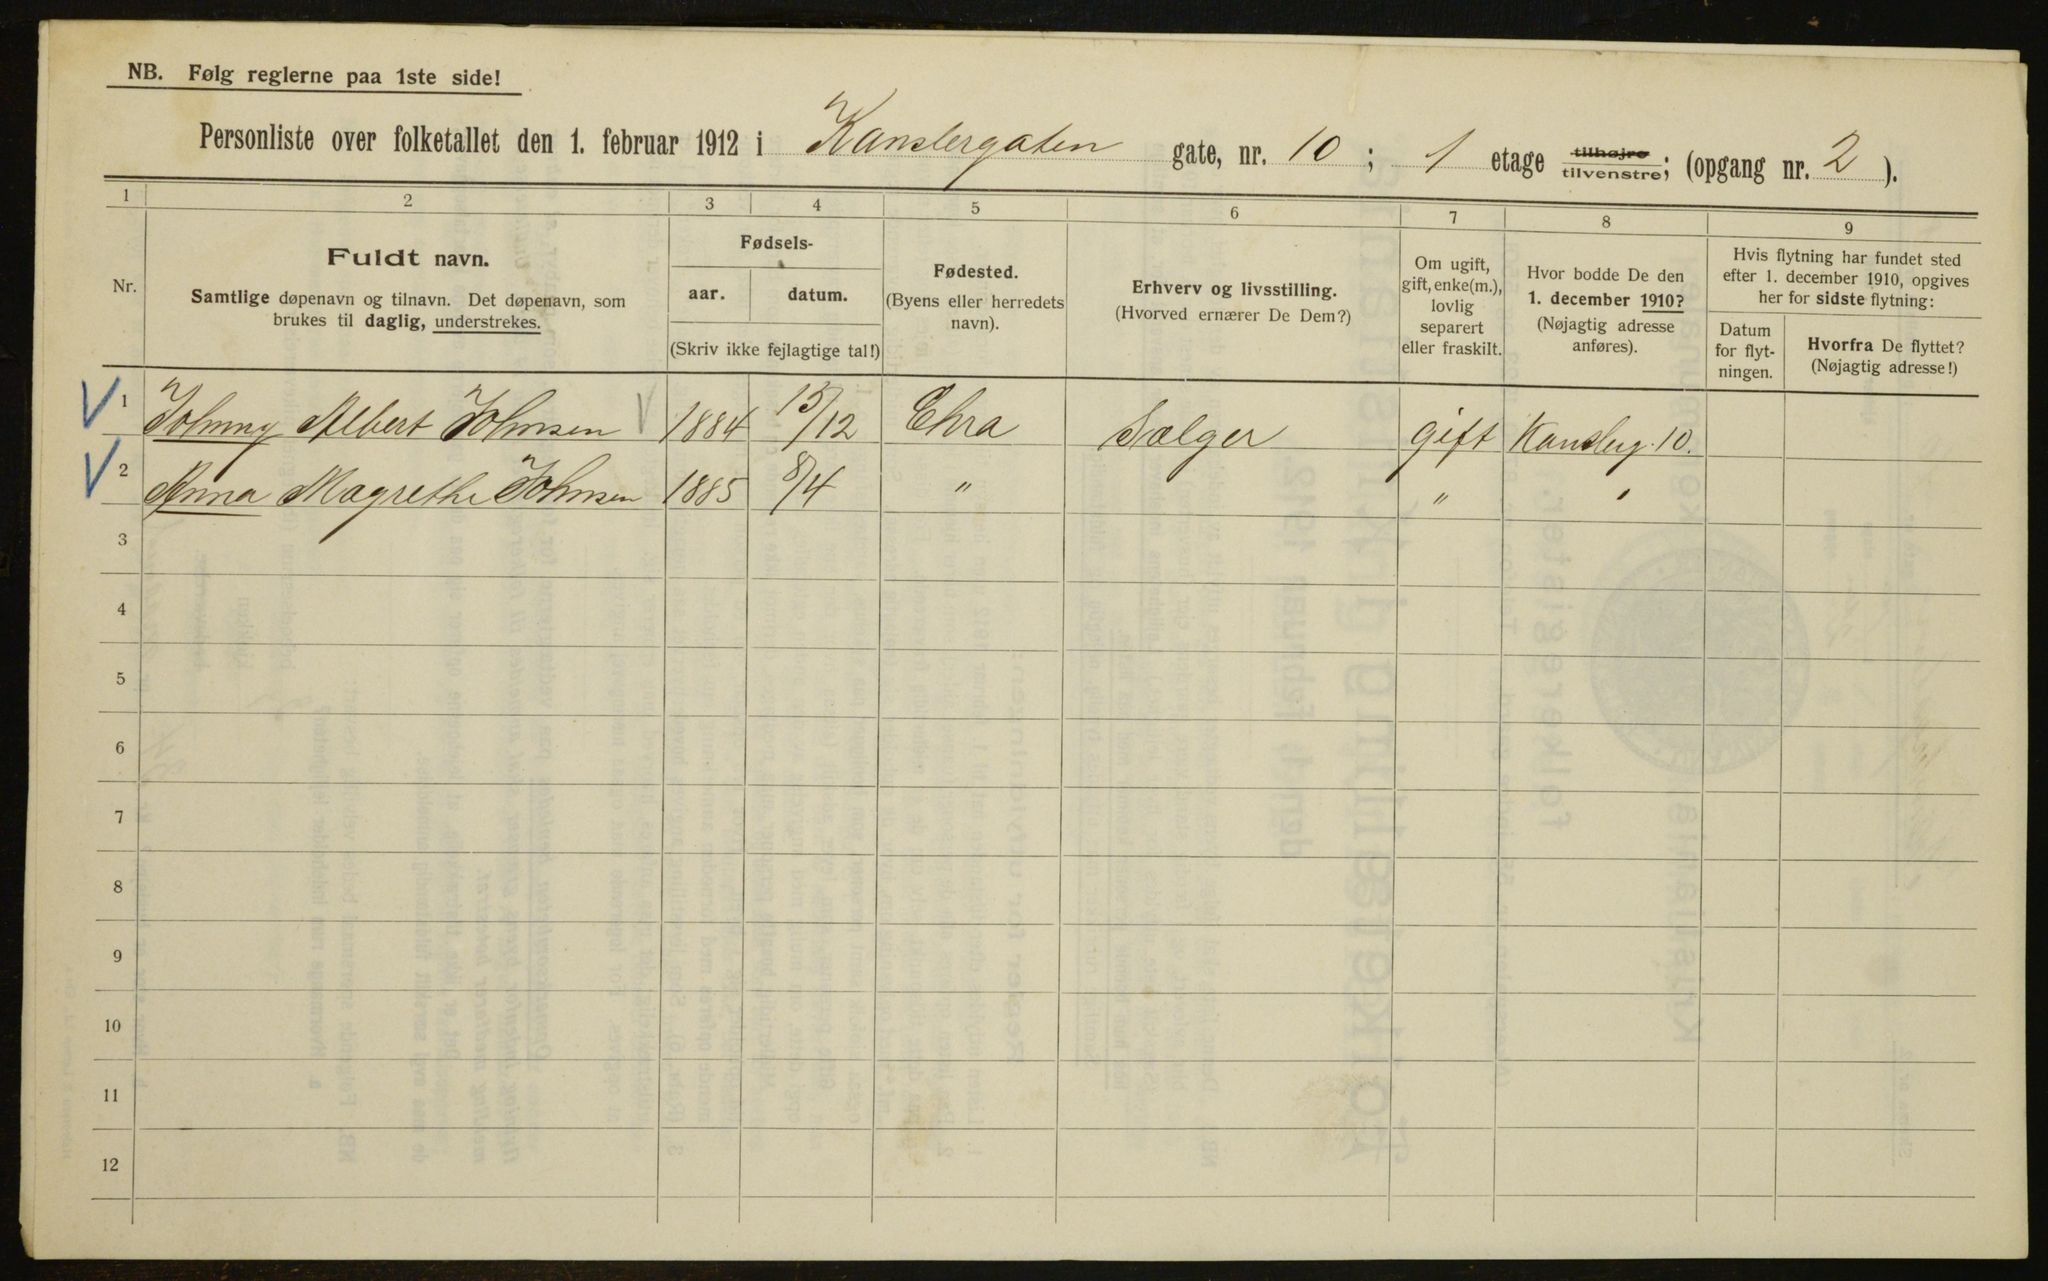 NB. Følg reglerne paa 1ste side!
Personliste over folketallet den 1. februar 1912 i Kanslergaten gate, nr. 10; 1 etage tilhøjre tilvenstre; (opgang nr. 2).
1 2 3 4 5 6 7 8 9
Nr.
Fuldt navn.
Samtlige døpenavn og tilnavn. Det døpenavn, som
brukes til daglig, understrekes.
Fødsels-
aar. datum.
(Skriv ikke fejlagtige tal!)
Fødested.
(Byens eller herredets
navn).
Erhverv og livsstilling.
(Hvorved ernærer De Dem?)
Om ugift,
gift, enke(m.),
lovlig
separert
eller fraskilt.
Hvor bodde De den
1. december 1910?
(Nøjagtig adresse
anføres).
Hvis flytning har fundet sted
efter 1. december 1910, opgives
her for sidste flytning:
Datum
for flyt-
ningen.
Hvorfra De flyttet?
(Nøjagtig adresse!)
1 Johnny Albert Johnsen 1884 13/12 Chra Sælger gift Kanslerg. 10.
2 Anna Magrethe Johnsen 1885 8/4 " " "
3
4
5
6
7
8
9
10
11
12